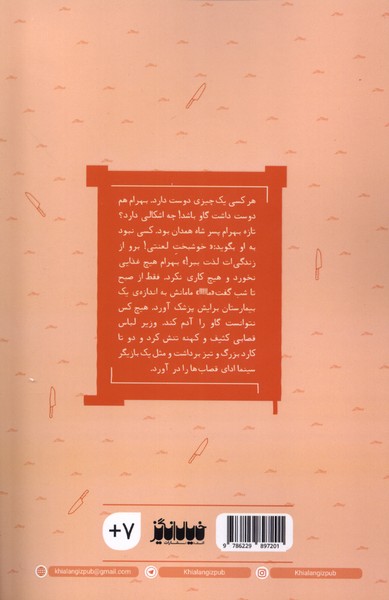 هر کسی یک چیزی دوست دارد. بهرام هم
دوست داشت گاو باشد! چه اشکالی دارد؟
تازه بهرام پسر شاه همدان بود. کسی نبود
به او بگوید: « خوشبختِ لعنتی! برو از
زندگی‌ات لذت ببر!» بهرام هیچ غذایی
نخورد و هیچ کاری نکرد. فقط از صبح
تا شب گفت «ماااا» مامانش به اندازه‌ی یک
بیمارستان برایش پزشک آورد. هیچ کس
نتوانست گاو را آدم کند. وزیر لباس
قصابی کثیف و کهنه تنش کرد و دو تا
کارد بزرگ و تیز برداشت و مثل یک بازیگر
سینما ادای قصاب‌ها را در آورد.
+۷
خیال‌انگیز
انتشارات
9 786229 897201
khialangizpub@gmail.com
Khialangizpub
Khialangizpub